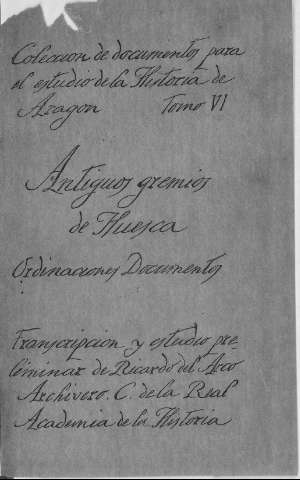 Coleccion de documentos para
el estudio de la Historia de
Aragon Tomo VI
Antiguos gremios
de Huesca
Ordinaciones Documentos
Transcripcion y estudio pre-
liminar de Ricardo del Arco
Archivero. C. de la Real
Academia de la Historia